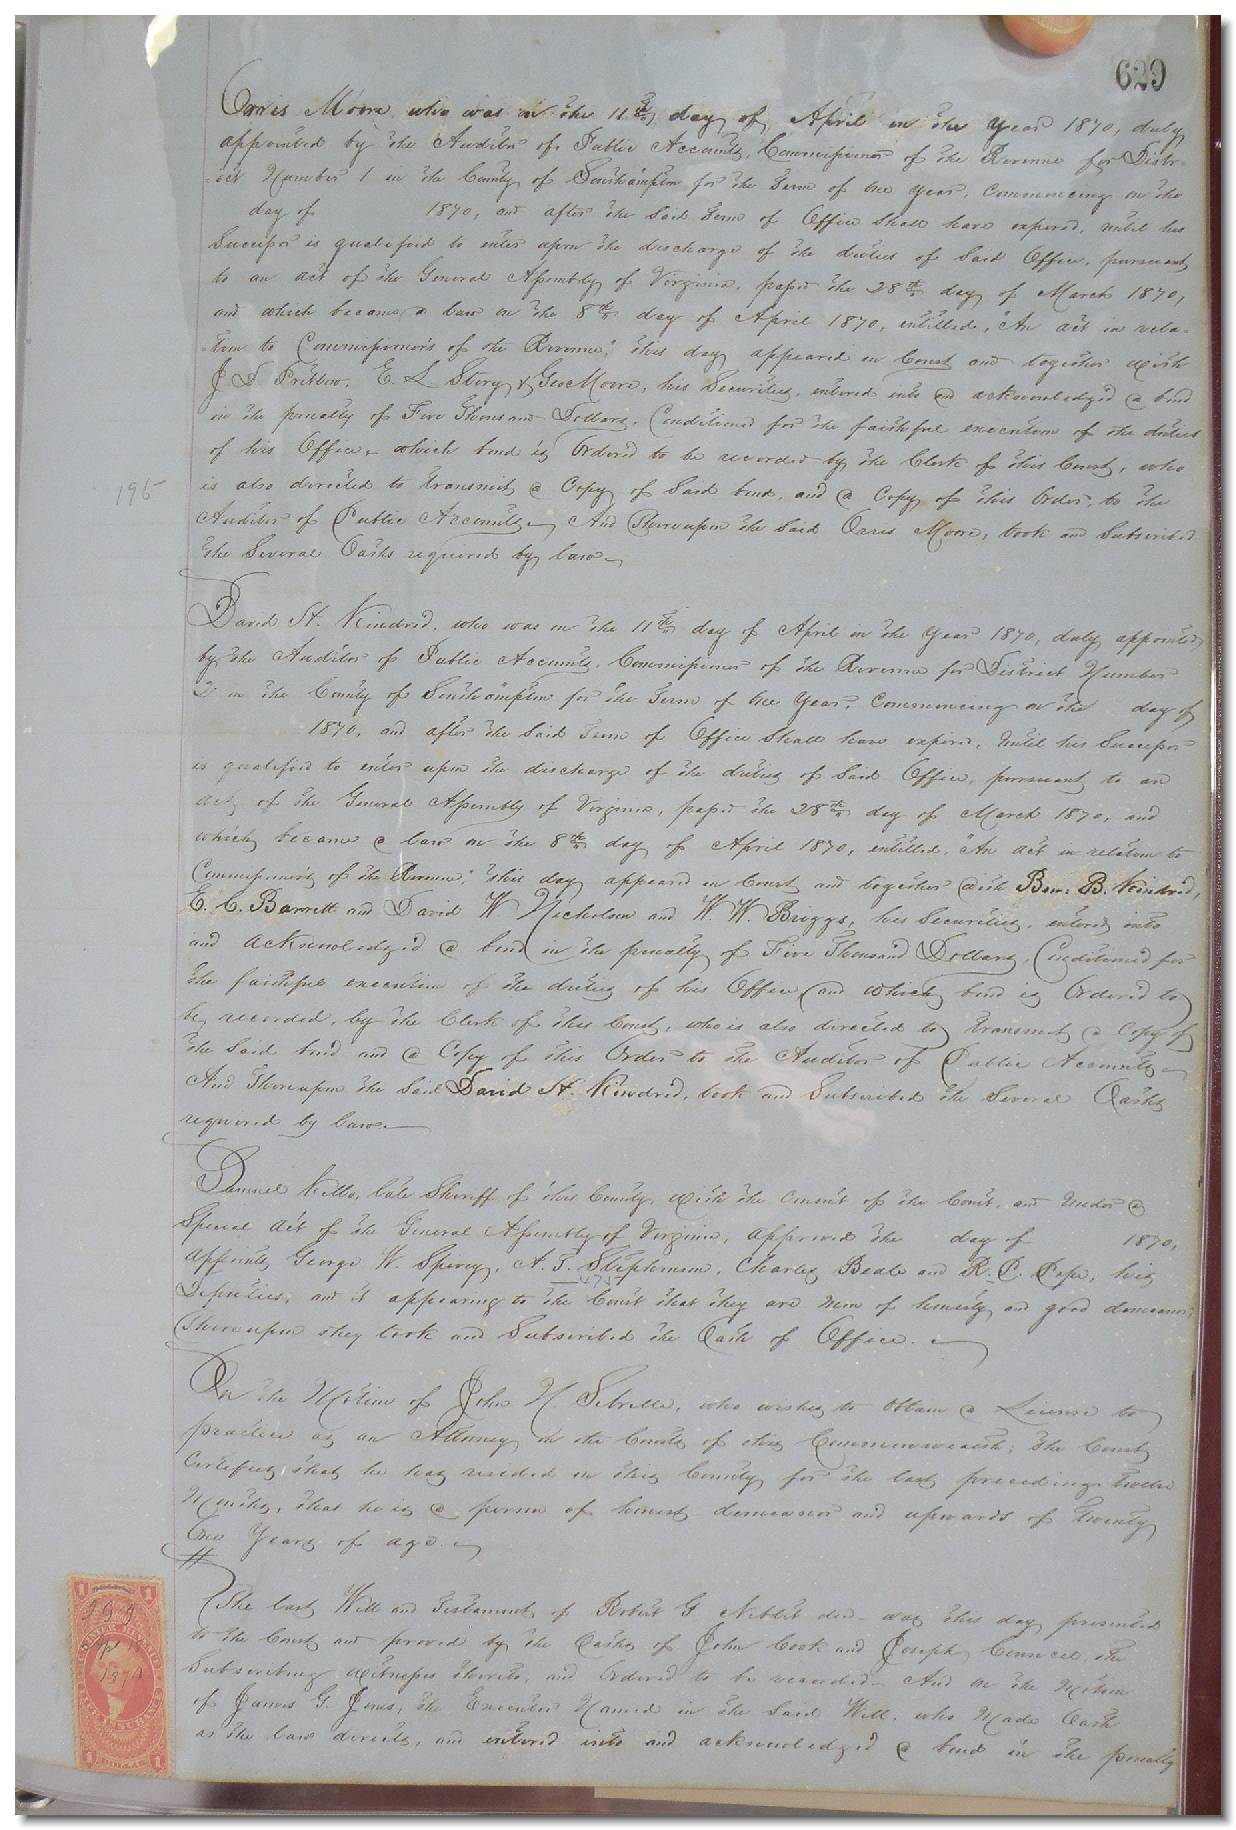 629
Orris Moore, who was on the 11th day of April in the Year 1870, duly
appointed by the Auditor of Public Accounts, Commissioner of the Revenue for Distr-
-ict Number 1 in the County of Southampton for the Term of One Year, Commencing on the
day of 1870, and after the Said Term of Office Shall have expired, until his
Successor is qualified to enter upon the discharge of the duties of Said Office, pursuant
to an act of the General Assembly of Virginia, passed the 28th day of March 1870,
and which became a law on the 8th day of April 1870, entitled, "An act in rela-
-tion to Commissioners of the Revenue," this day appeared in Court and together with
J D Pretlow, E. L Story & Geo Moore, his Securities, entered into and acknowledged a bond
in the penalty of Five Thousand Dollars, Conditioned for the faithful execution of the duties
of his Office, which bond is Ordered to be recorded by the Clerk of this Court, who
is also directed to transmit a Copy of Said bond, and a Copy of this Order, to the
196
Auditor of Public Accounts. And Thereupon the Said Orris Moore, took and Subscribed
the Several Oaths required by law.
David H. Kindred, who was on the 11th day of April in the Year 1870, duly appointed
by the Auditor of Public Accounts, Commissioner of the Revenue for District Number
2 in the County of Southampton for the Term of One Year, Commencing on the day of
1870, and after the Said Term of Office Shall have expired, Until his Successor
is qualified to enter upon the discharge of the duties of Said Office, pursuant to an
act of the General Assembly of Virginia, passed the 28th day of March 1870, and
which became a law on the 8th day of April 1870, entitled, "An act in relation to
Commissioners of the Revenue," this day appeared in Court and together with Benj. B. Kindred,
E. C. Barrett and David W Nicholson and W. W. Briggs, his Securities, entered into
and acknowledged a bond in the penalty of Five Thousand Dollars, Conditioned for
the faithful execution of the duties of his Office, and which bond is Ordered to
be recorded, by the Clerk of this Court, who is also directed to transmit a Copy of
the Said bond and a Copy of this Order to the Auditor of Public Accounts.
And Thereupon the Said David H. Kindred, took and Subscribed the Several Oaths
required by law.
Samuel Kello, late Sheriff of this County, with the Consent of the Court, and Under a
Special act of the General Assembly of Virginia, approved the day of 1870,
appoints George W. Spivey, A. T. Stephenson, Charles Beale and R. C. Pope, his
Deputies, and it appearing to the Court that they are Men of honesty and good demeanor,
Thereupon they took and Subscribed the Oath of Office.
On the Motion of John N. Sebrelle, who wishes to Obtain a License to
practice as an Attorney in the Courts of this Commonwealth; the Court
Certifies that he has resided in this County for the last preceding twelve
Months, that he is a person of honest demeanor and upwards of Twenty
One Years of age.
#
The last Will and Testament of Robert G Niblett dec. was this day presented
to the Court and proved by the Oaths of John Cook and Joseph Councel, the
Subscribing Witnesses thereto, and Ordered to be recorded. And on the Motion
of James G. Jones, the Executor Named in the Said Will, who Made Oath
as the law directs, and entered into and acknowledged a bond in the penalty
1 1
1870
1 1